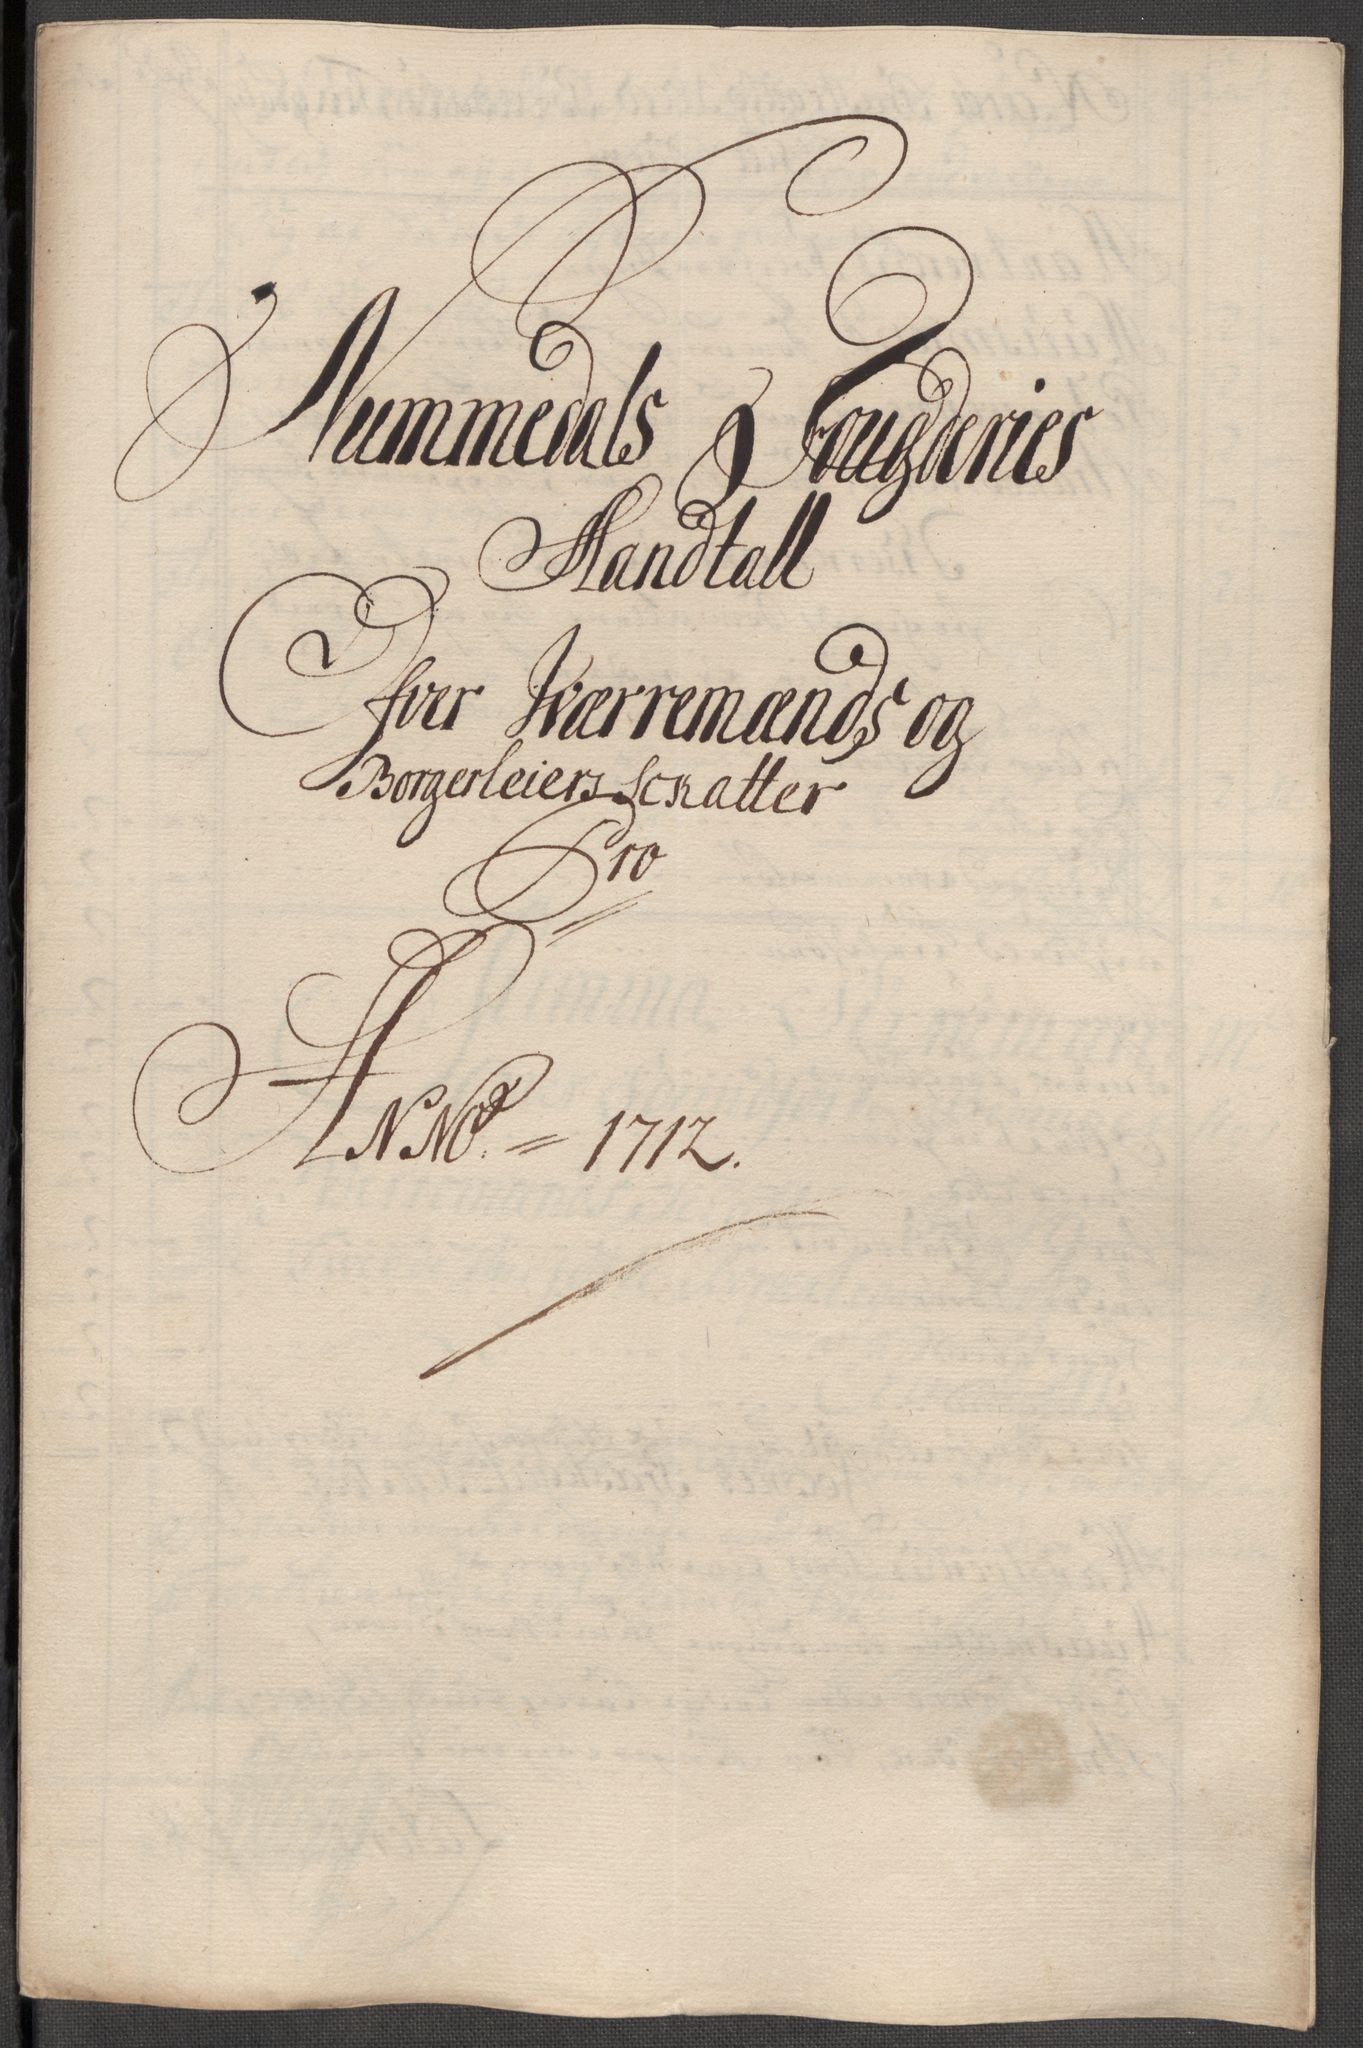 Nummedals Fougderies
Mandtall
Ofver Qværremænds og
Borgerleiers schatter
Pro
ANNO = 1712.